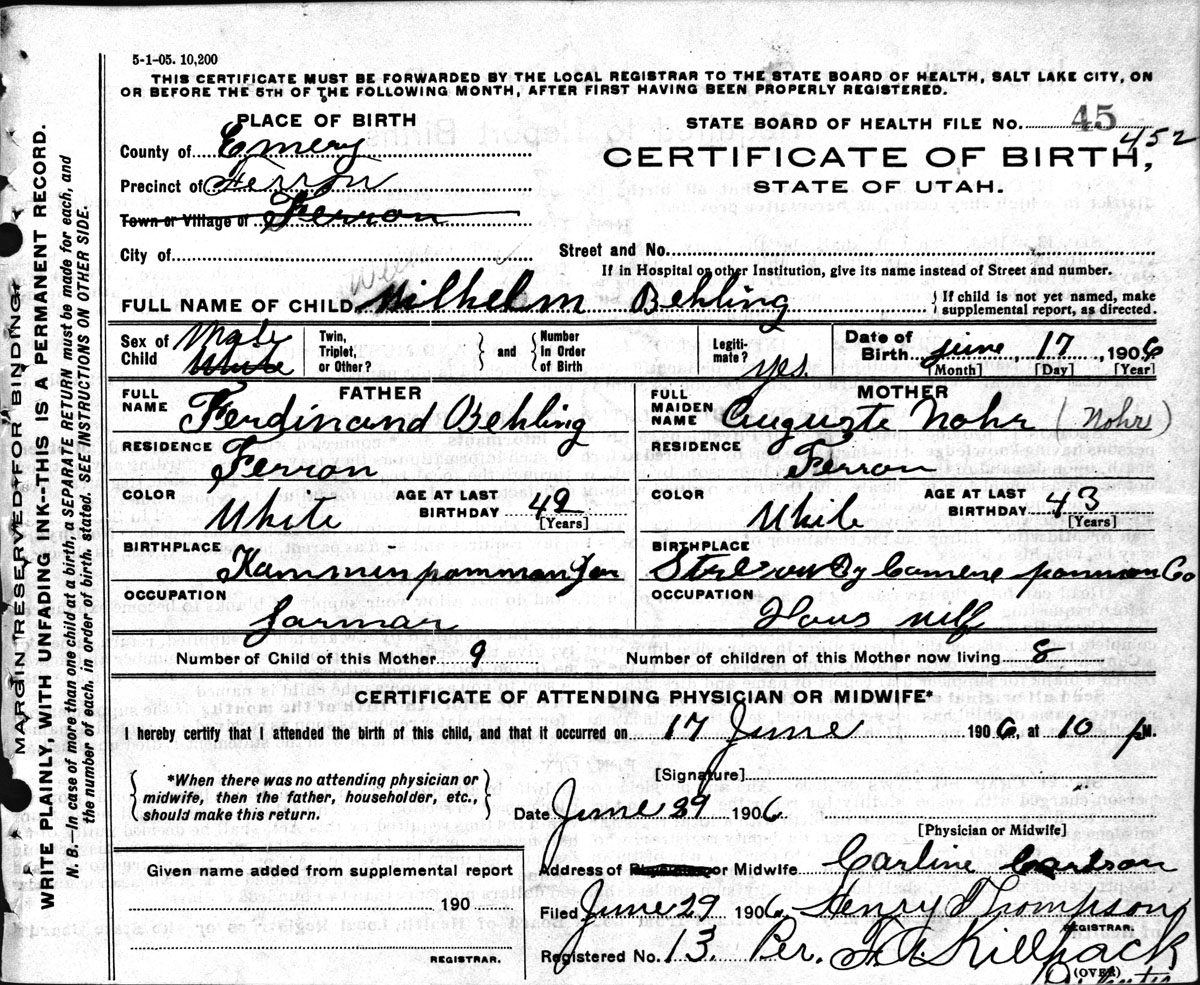 5-1-05. 10,200
THIS CERTIFICATE MUST BE FORWARDED BY THE LOCAL REGISTRAR TO THE STATE BOARD OF HEALTH, SALT LAKE CITY, ON
OR BEFORE THE 5TH OF THE FOLLOWING MONTH, AFTER FIRST HAVING BEEN PROPERLY REGISTERED.
MARGIN RESERVED FOR BINDING
WRITE PLAINLY, WITH UNFADING INK--THIS IS A PERMANENT RECORD.
N. B.—In case of more than one child at a birth, a SEPARATE RETURN must be made for each, and
the number of each, in order of birth, stated. SEE INSTRUCTIONS ON OTHER SIDE.
PLACE OF BIRTH
County of Emery
Precinct of Ferron
Town or Village of Ferron
City of
STATE BOARD OF HEALTH FILE No. 45
452
CERTIFICATE OF BIRTH,
STATE OF UTAH.
Street and No.
If in Hospital or other Institution, give its name instead of Street and number.
FULL NAME OF CHILD Wilhelm Behling
If child is not yet named, make
supplemental report, as directed.
Sex of Child Male White
Twin, Triplet, or Other?
and
Number In Order of Birth
Legiti-mate? yes.
Date of Birth june, 17, 1906
[Month] [Day] [Year]
FATHER
FULL NAME Ferdinand Behling
RESIDENCE Ferron
COLOR White
AGE AT LAST BIRTHDAY 42
[Years]
BIRTHPLACE Kammin pomman
OCCUPATION farmar
MOTHER
FULL MAIDEN NAME Auguste Nohr (Nohr)
RESIDENCE Ferron
COLOR White
AGE AT LAST BIRTHDAY 43
[Years]
BIRTHPLACE By Camene
OCCUPATION Hous wilf
Number of Child of this Mother 9
Number of children of this Mother now living 8
CERTIFICATE OF ATTENDING PHYSICIAN OR MIDWIFE*
I hereby certify that I attended the birth of this child, and that it occurred on 17 June 1906, at 10 p M.
*When there was no attending physician or
midwife, then the father, householder, etc.,
should make this return.
[Signature]
Date June 29 1906
[Physician or Midwife]
Given name added from supplemental report
190
REGISTRAR.
Address of Physician or Midwife Carline Carlson
Filed June 29 1906 Henry Thompson
REGISTRAR.
Registered No. 13. Per. Killpack
(OVER)